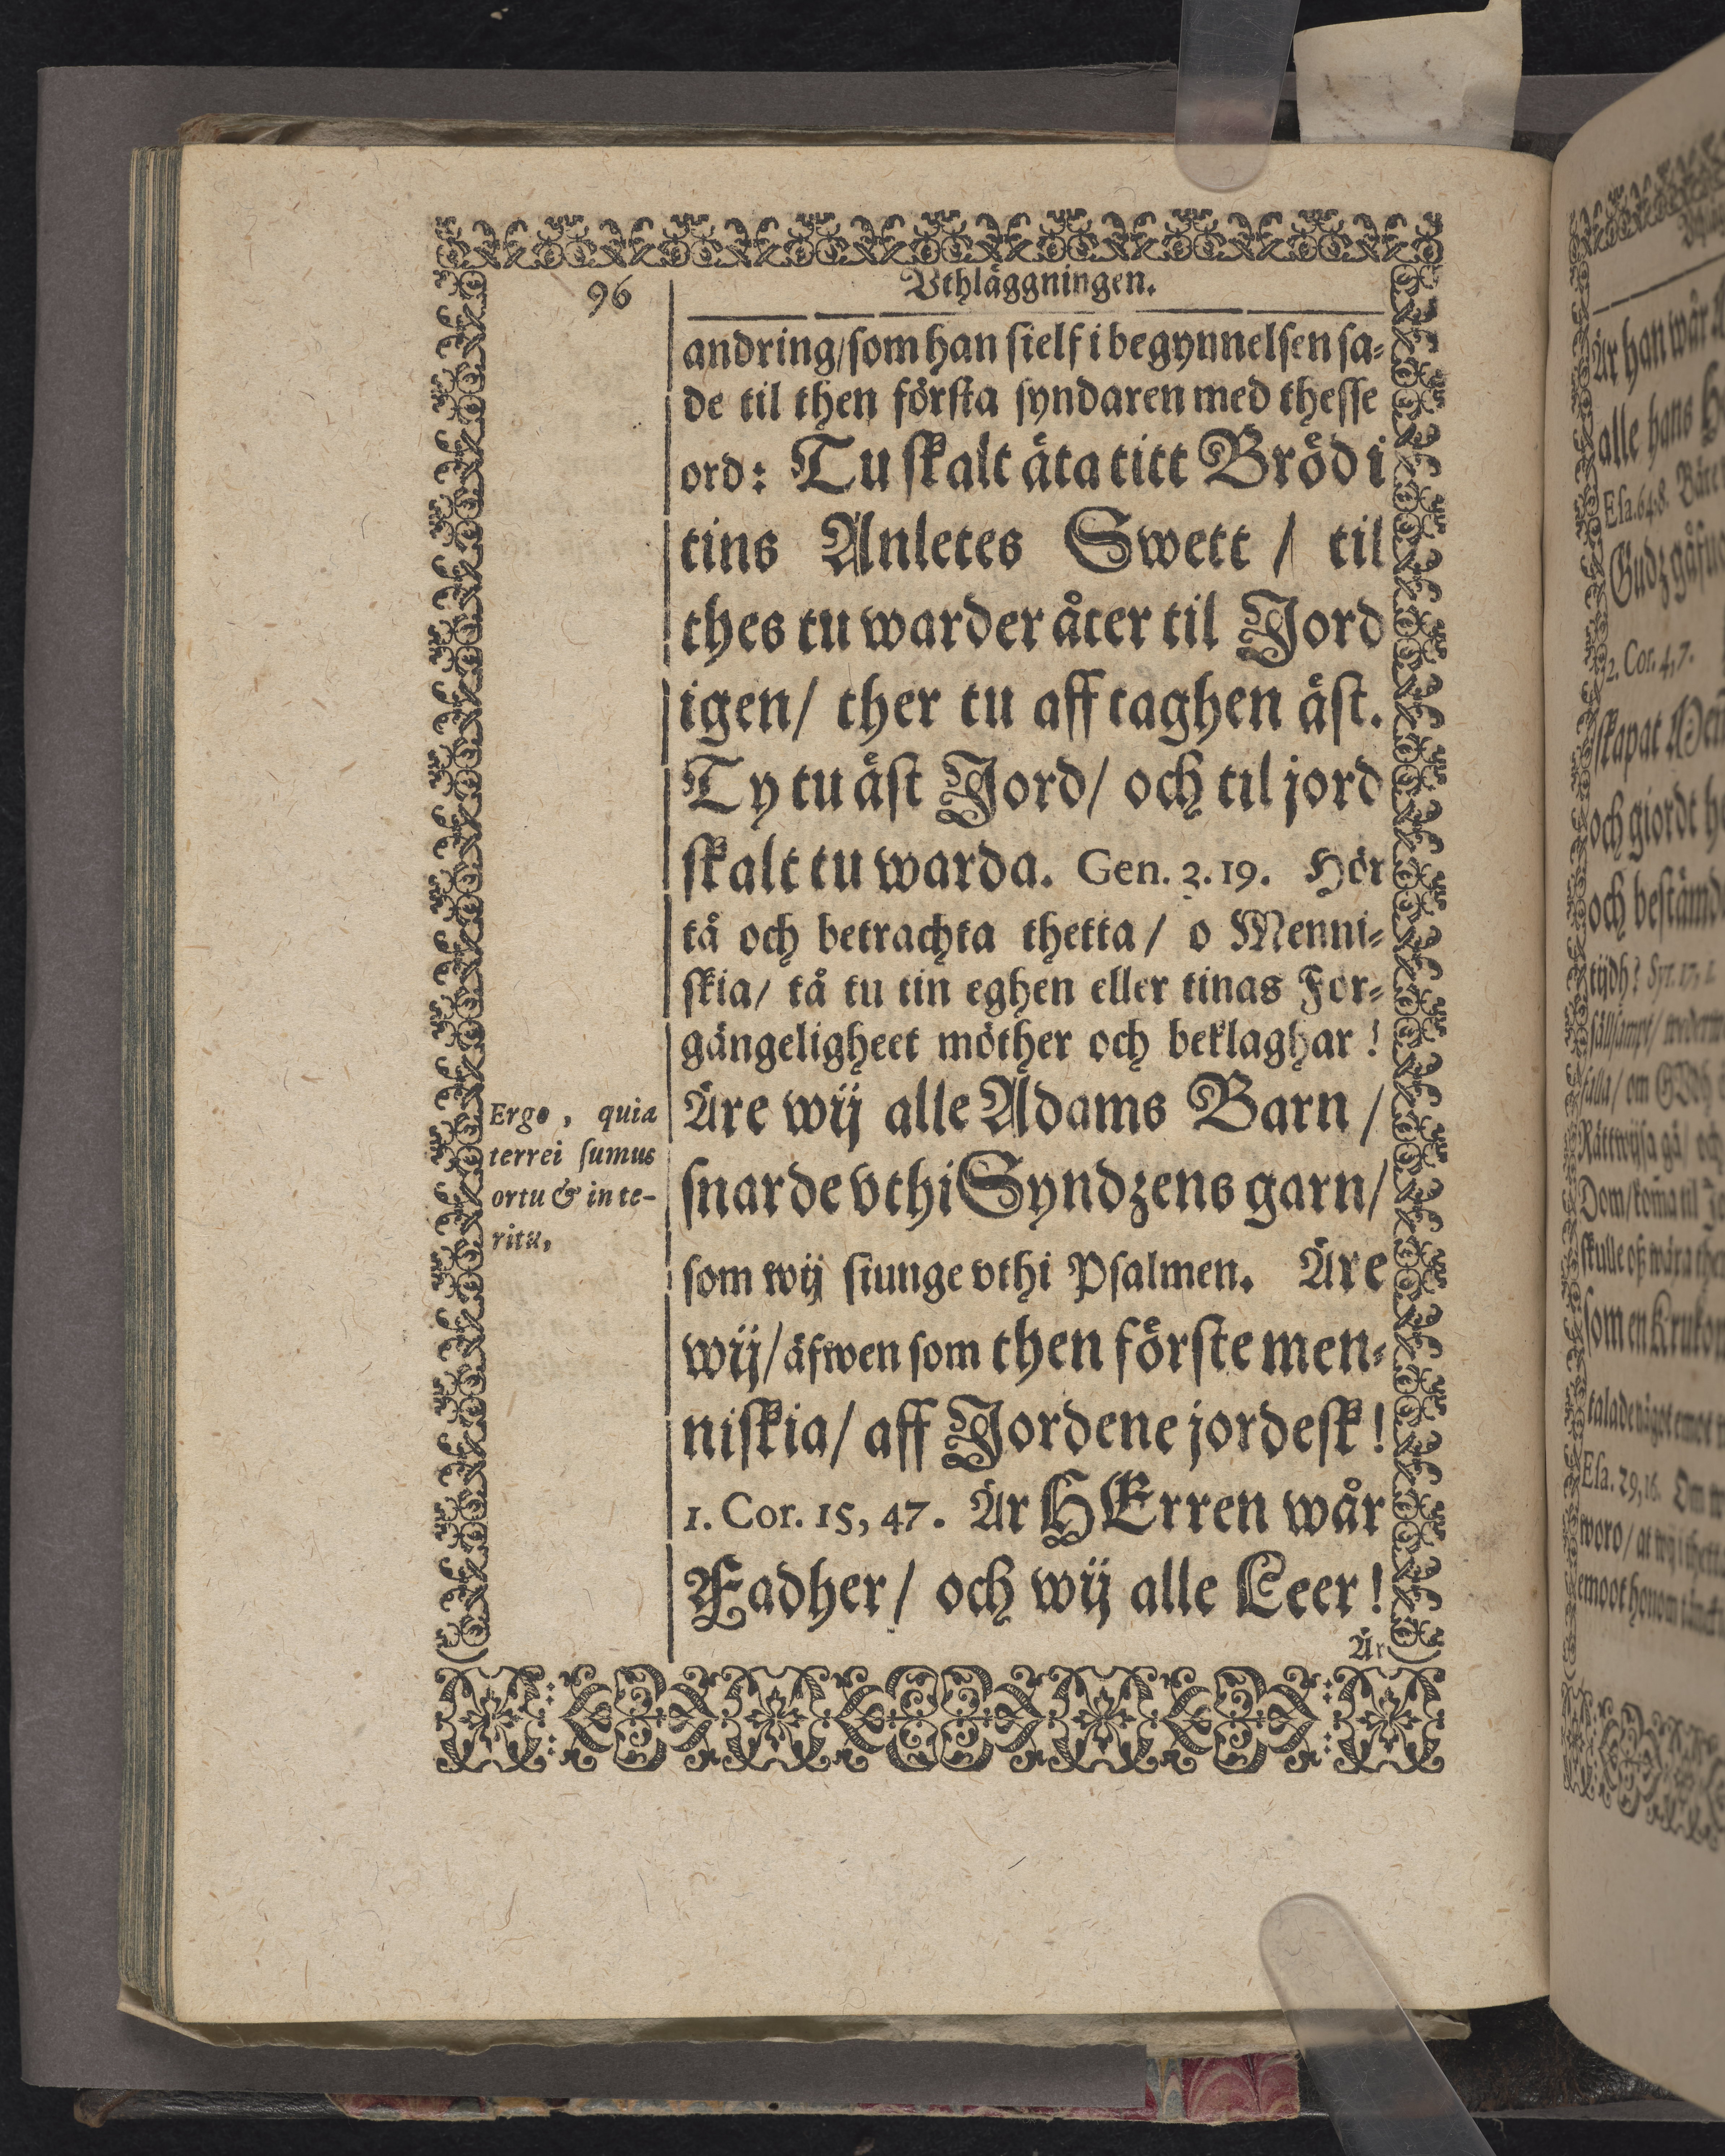 96
Vthläggningen.
andring/som han sielf i begynnelsen sa-
de til then första syndaren med thesse
ord: Tu skalt äta titt Bröd i
tins Anletes Swett / til
thes tu warder åter til Jord
igen/ ther tu aff taghen äst.
Ty tu äst Jord/ och til jord
skalt tu warda. Gen. 3.19. Hör
tå och betrachta thetta/ o Menni-
skia/ tå tu tin eghen eller tinas For-
gängeligheet möther och beklaghar!
Äre wij alle Adams Barn/
snarde vthi Syndzens garn/
som wij siunge vthi Psalmen. Äre
wij/ äfwen som then förste men-
niskia/ aff Jordene jordesk!
1. Cor. 15, 47. Är HErren wår
Fadher/ och wij alle Leer!
Är
Ergo, quia
terrei sumus
ortu & inte-
ritu,
Är han wår
alle hans
Esa. 64. 8.
Gudz
2. Cor. 4, 7.
skapat
och giordt
och bestämd
tijdh? Syr. 17, 1.
falla/ om
Rättwijsa
som en
Esa. 29, 16. Om
woro/ at wij
emoot honom